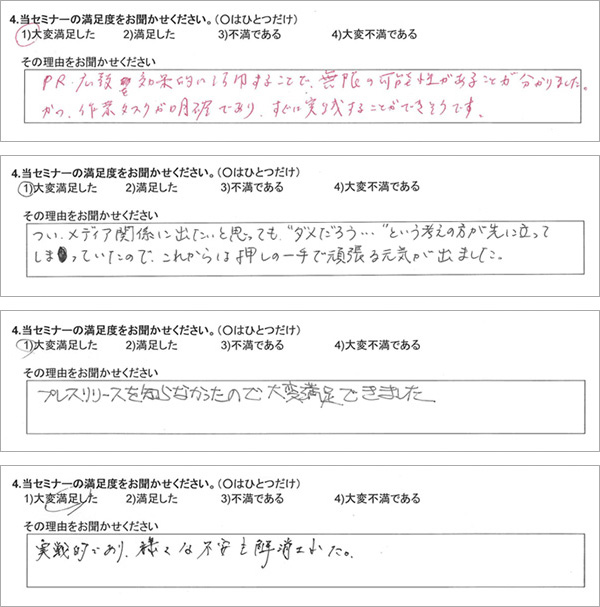 4.当セミナーの満足度をお聞かせください。(〇はひとつだけ)
1)大変満足した 2)満足した 3)不満である 4)大変不満である
その理由をお聞かせください
PR、広報を効果的に活用することで、無限の可能性があることが分かりました。
かつ、作業タスクが明確であり、すぐに実践することができそうです。
4.当セミナーの満足度をお聞かせください。(〇はひとつだけ)
1)大変満足した 2)満足した 3)不満である 4)大変不満である
その理由をお聞かせください
つい、メディア関係に出たいと思っても、"ダメだろう…"という考えの方が先に立って
しまっていたので、これからは押しの一手で頑張る元気が出ました。
4.当セミナーの満足度をお聞かせください。(〇はひとつだけ)
1)大変満足した 2)満足した 3)不満である 4)大変不満である
その理由をお聞かせください
プレスリリースを知らなかったので大変満足できました
4.当セミナーの満足度をお聞かせください。(〇はひとつだけ)
1)大変満足した 2)満足した 3)不満である 4)大変不満である
その理由をお聞かせください
実戦的であり、様々な不安も解消された。